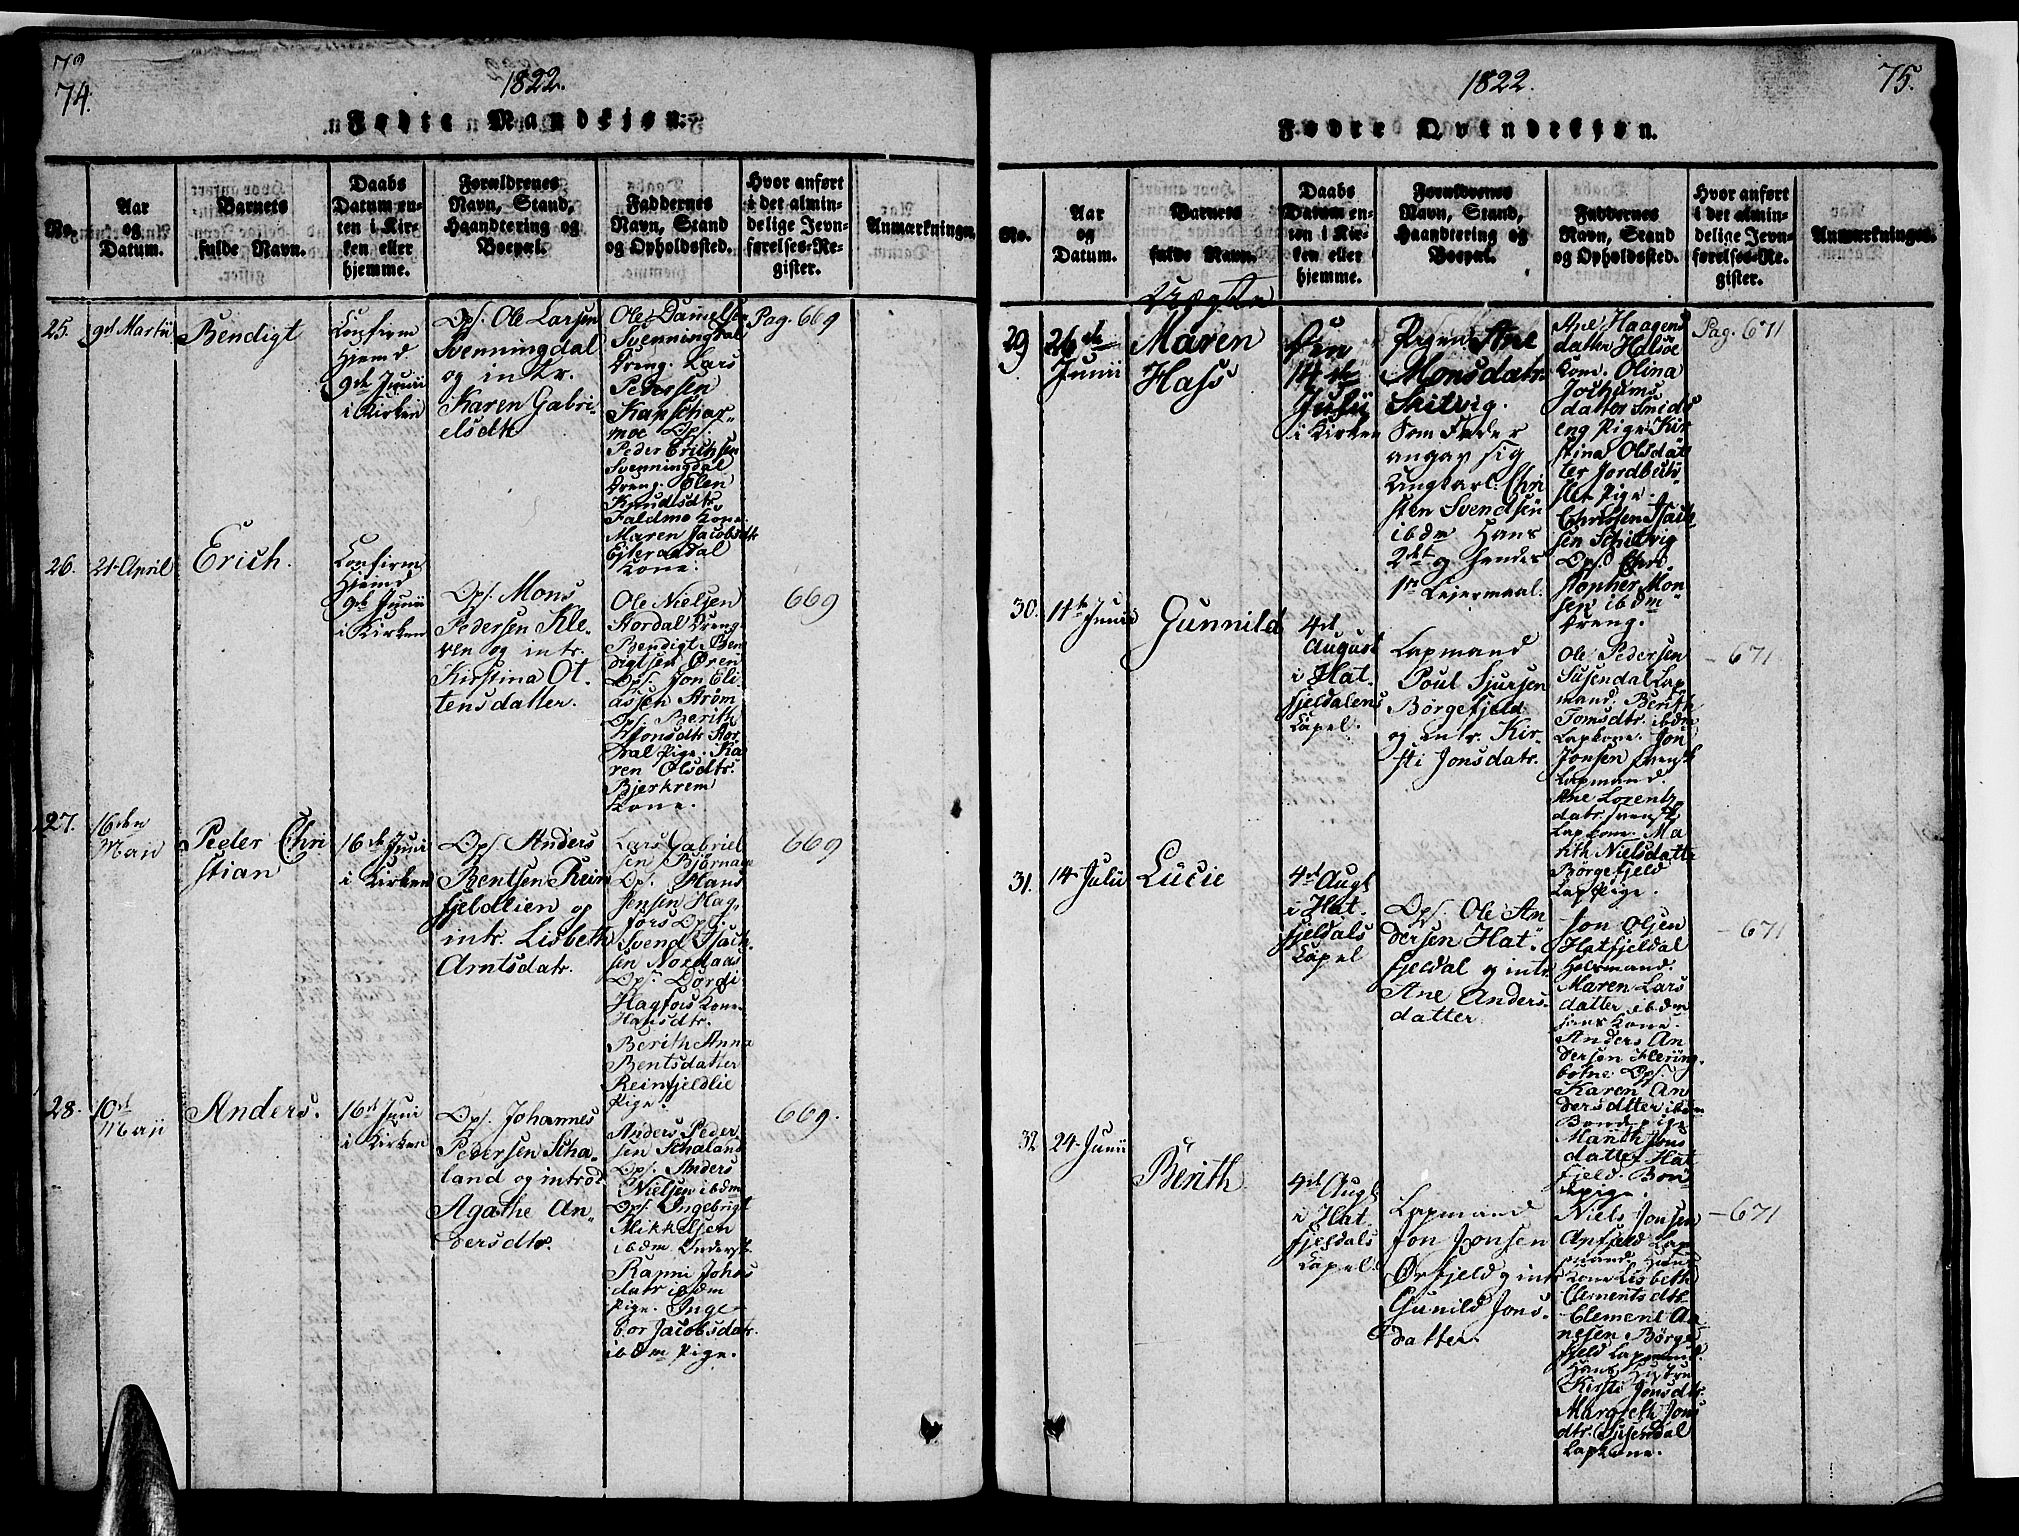 74.
1822.
Fødte Mandkjøn.
No.
Aar
og
Datum.
Barnets
fulde Navn.
Daabs
Datum en-
ten i Kir-
ken eller
hjemme.
Forældrenes
Navn, Stand,
Haandtering og
Boepæl.
Faddernes
Navn, Stand
og Opholdssted.
Hvor anført
i det almin-
delige Jevn-
førelses-Re-
gister.
Anmærkninger.
25.
9d Martii
Bendigt
Confirm
Hjemd
9de Junii
i Kirken
Ops. Ole Larsen
Svenningdal
og intr.
Karen Gabri-
elsdtr
Ole Danielsen
Svenningdal
Dreng. Lars
Pederssen
Kapschar-
moe Ops.
Peder Erichsen
Svenningdal
Dreng. Elen
Knudsdtr.
Faldmo Kone
Maren Jacobsdtr
Ejteraadal
Kone.
Pag. 669
26.
21 April
Erich.
Confirm
Hjemd
9de Junii
i Kirken
Ops. Mons
Pedersen Kle-
ven og intr.
Kirstina Ot-
tensdatter.
Ole Nielsen
Stordal Dreng
Bendigt Ben
digtsen Øren
Ops. Jon Eli-
assen Strøm
Ops. Berith
Monsdtr Stor
dal Pige. Ka
ren Olsdtr.
Bjerkrem
Kone.
669
27.
16den
Maii
Peder Chri
stian
16de Juni
i Kirken
Ops. Anders
Bentsen Rein
fjeldlien og
intr. Lisbeth
Arntsdatr.
Lars Gabriel
sen Bjørnaae
Ops. Hans
Jensen Hag
fors Ops.
Svend Isach
sen Nordaas
Ops. Dordi
Hagfors Kone
Hansdtr.
Berith Anna
Bentsdatter
Reinfjeldlie
Pige.
669
28.
10de
Maji
Anders.
16d Juni
i Kirken
Ops. Johannes
Pedersen Scha-
land og introd
Agathe An-
dersdtr.
Anders Peder
sen Schaland
Ops. Anders
Nielsen ibdm
Ops. Ingebrigt
Mikkelsen
ibdm.
Rapni Johas
datr ibdm
Pige. Inge-
bor Jacobsdatr.
ibdm Pige.
669.
1822.
75.
Fødte Qvindekjøn.
No.
Aar
og
Datum.
Barnets
fulde Navn.
Daabs
Datum en-
ten i Kir-
ken eller
hjemme.
Forældrenes
Navn, Stand,
Haandtering og
Boepæl.
Faddernes
Navn, Stand
og Opholdssted.
Hvor anført
i det almin-
delige Jevn-
førelses-Re-
gister.
Anmærkninger.
29
26de
Junii
Uægte
Maren
Hass
Den
14de
Julii
i Kirken
Pigen Ane
Monsdatr.
Skilvig.
Som Fader
angav sig
Ungkarl. Chri
sten Svendsen
ibdm Hans
2det og hendes
1te Lejermaal.
Ane Haagens
datter Halsøe
Kone. Olina
Jochums
datter Snids
eng Pige. Kir
stina Olsdat
ter Jordbru
slet Pige.
Christen Isach
sen Schilvig
Ops. Chri
stopher Mon
sen ibdm
Dreng.
Pag. 671
30.
11te Junii
Gunnild
4de
August
i Hat
fjeldalens
Capel.
Lapmand
Poul Sjursen
Børgefjeld
og intr. Kir-
sti Jonsdatr.
Ole Pedersen
Susendal Lap
mand. Berith
Tomsdtr. ibdm
Lapkone. Jon
Jonsen Svensk
Lapmand.
Ane Lorents
datr. svensk
Lapkone. Ma
rith Nielsdatter
Børgefjeld
Lap Pige.
- 671
31.
14 Julii
Lucie
4de Augt
i Hat
fjeldals
Capel
Ops. Ole An
dersen Hat
fjeldal og intr.
Ane Anders-
datter
Jon Olsen
Hatfjeldal
Maren Lars
datter ibdm
hans Kone.
Anders An
dersen Hering
botne. Ops.
Karen An
dersdtter ibdm
Bondepige
Marith Jons
datter Hat
fjeld. Bon
depige.
- 671
32
24 Junii
Berith
4de Augt
i Hat
fjeldals
Capel
Lapmand
Jon Jonsen
Ørfjeld og intr
Gunild Jons
datter.
Niels Jonsen
Apfjeld Lap
mand. Hans
Kone Lisbeth
Clementsdtr.
Clement Ar
nesen Børge
fjeld Lapmand.
Hans Hustru
Kirsti Jonsdtr.
Margreth Jons
dtr. Susendal
Lapkone.
- 671